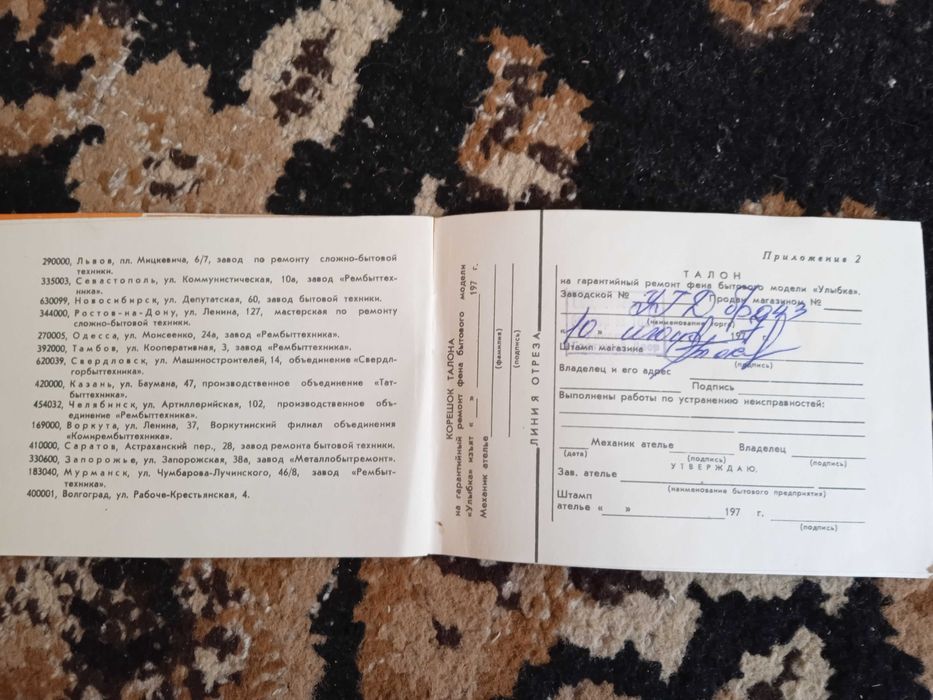 290000, Львов, пл. Мицкевича, 6/7, завод по ремонту сложно-бытовой
техники.
335003, Севастополь, ул. Коммунистическая, 10а, завод «Рембыттех-
ника».
630099, Новосибирск, ул. Депутатская, 60, завод бытовой техники.
344000, Ростов-на-Дону, ул. Ленина, 127, мастерская по ремонту
сложно-бытовой техники.
270005, Одесса, ул. Моисеенко, 24а, завод «Рембыттехника».
392000, Тамбов, ул. Кооперативная, 3, завод «Рембыттехника».
620039, Свердловск, ул. Машиностроителей, 14, объединение «Свердл-
горбыттехника».
420000, Казань, ул. Баумана, 47, производственное объединение «Тат-
быттехника».
454032, Челябинск, ул. Артиллерийская, 102, производственное объ-
единение «Рембыттехника».
169000, Воркута, ул. Ленина, 37, Воркутинский филиал объединения
«Комирембыттехника».
410000, Саратов, Астраханский пер., 28, завод ремонта бытовой техники.
330600, Запорожье, ул. Запорожская, 38а, завод «Металлобытремонт».
183040, Мурманск, ул. Чумбарова-Лучинского, 46/8, завод «Рембыт-
техника».
400001, Волгоград, ул. Рабоче-Крестьянская, 4.
КОРЕШОК ТАЛОНА
на гарантийный ремонт фена бытового модели
«Улыбка» изъят « » 197 г.
Механик ателье
(фамилия)
(подпись)
ЛИНИЯ ОТРЕЗА
Приложение 2
ТАЛОН
на гарантийный ремонт фена бытового модели «Улыбка».
Заводской № Продан магазином №
(наименование торга)
«10» 197 г.
Штамп магазина
(подпись)
Владелец и его адрес
Подпись
Выполнены работы по устранению неисправностей:
Механик ателье Владелец
(дата) (подпись) (подпись)
УТВЕРЖДАЮ.
Зав. ателье
(наименование бытового предприятия)
Штамп
ателье « » 197 г.
(подпись)